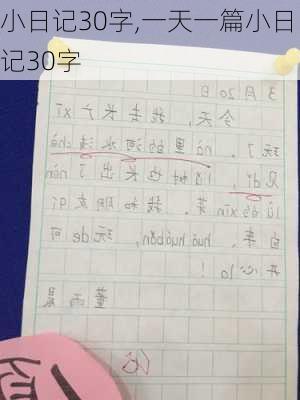 小日记30字,一天一篇小日
记30字
3月20日
今天,我去长广xī
玩了。nà里的河水清chè
见dǐ,树也长出了nèn
lǜ的xīn芽。我和朋友
huó huó bǎn,玩de可
开心la!